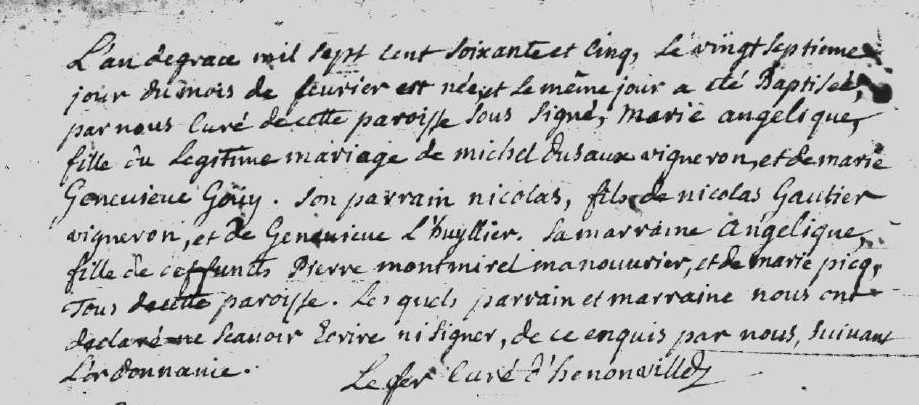 L'an de grace mil sept cent soixante et cinq, le vingt septieme
jour du mois de fevrier est née, et le même jour a été Baptisée,
par nous Curé de cette paroisse sous signé, marie angelique,
fille du Legitime mariage de michel dusaux vigneron, et de marie
Genevieve Goüy. Son parrain nicolas, fils de nicolas Gautier
vigneron, et de Genevieve L'huyllier. Sa marraine Angelique,
fille de deffuncts Pierre montmirel manouvrier, et de marie picq,
Tous de cette paroisse. Les quels parrain et marraine nous ont
declaré ne Scavoir Ecrire ni signer, de ce enquis par nous, suivant
L'ordonnance.
Lefer Curé d'henonville